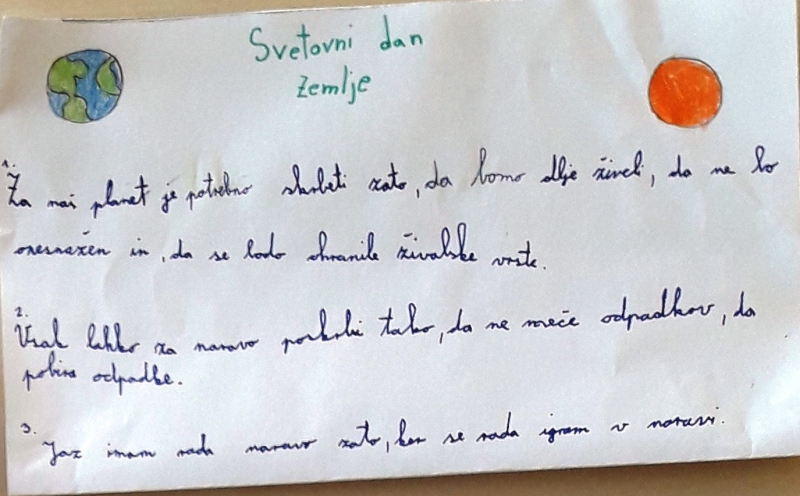 Svetovni dan
zemlje
1.
Za naš planet je potrebno skrbeti zato, da bomo dlje živeli, da ne bo
onesnažen in, da se bodo ohranile živalske vrste.
2.
Vsak lahko za naravo poskrbi tako, da ne meče odpadkov, da
pobira odpadke.
3.
Jaz imam rada naravo zato, ker se rada igram v naravi.